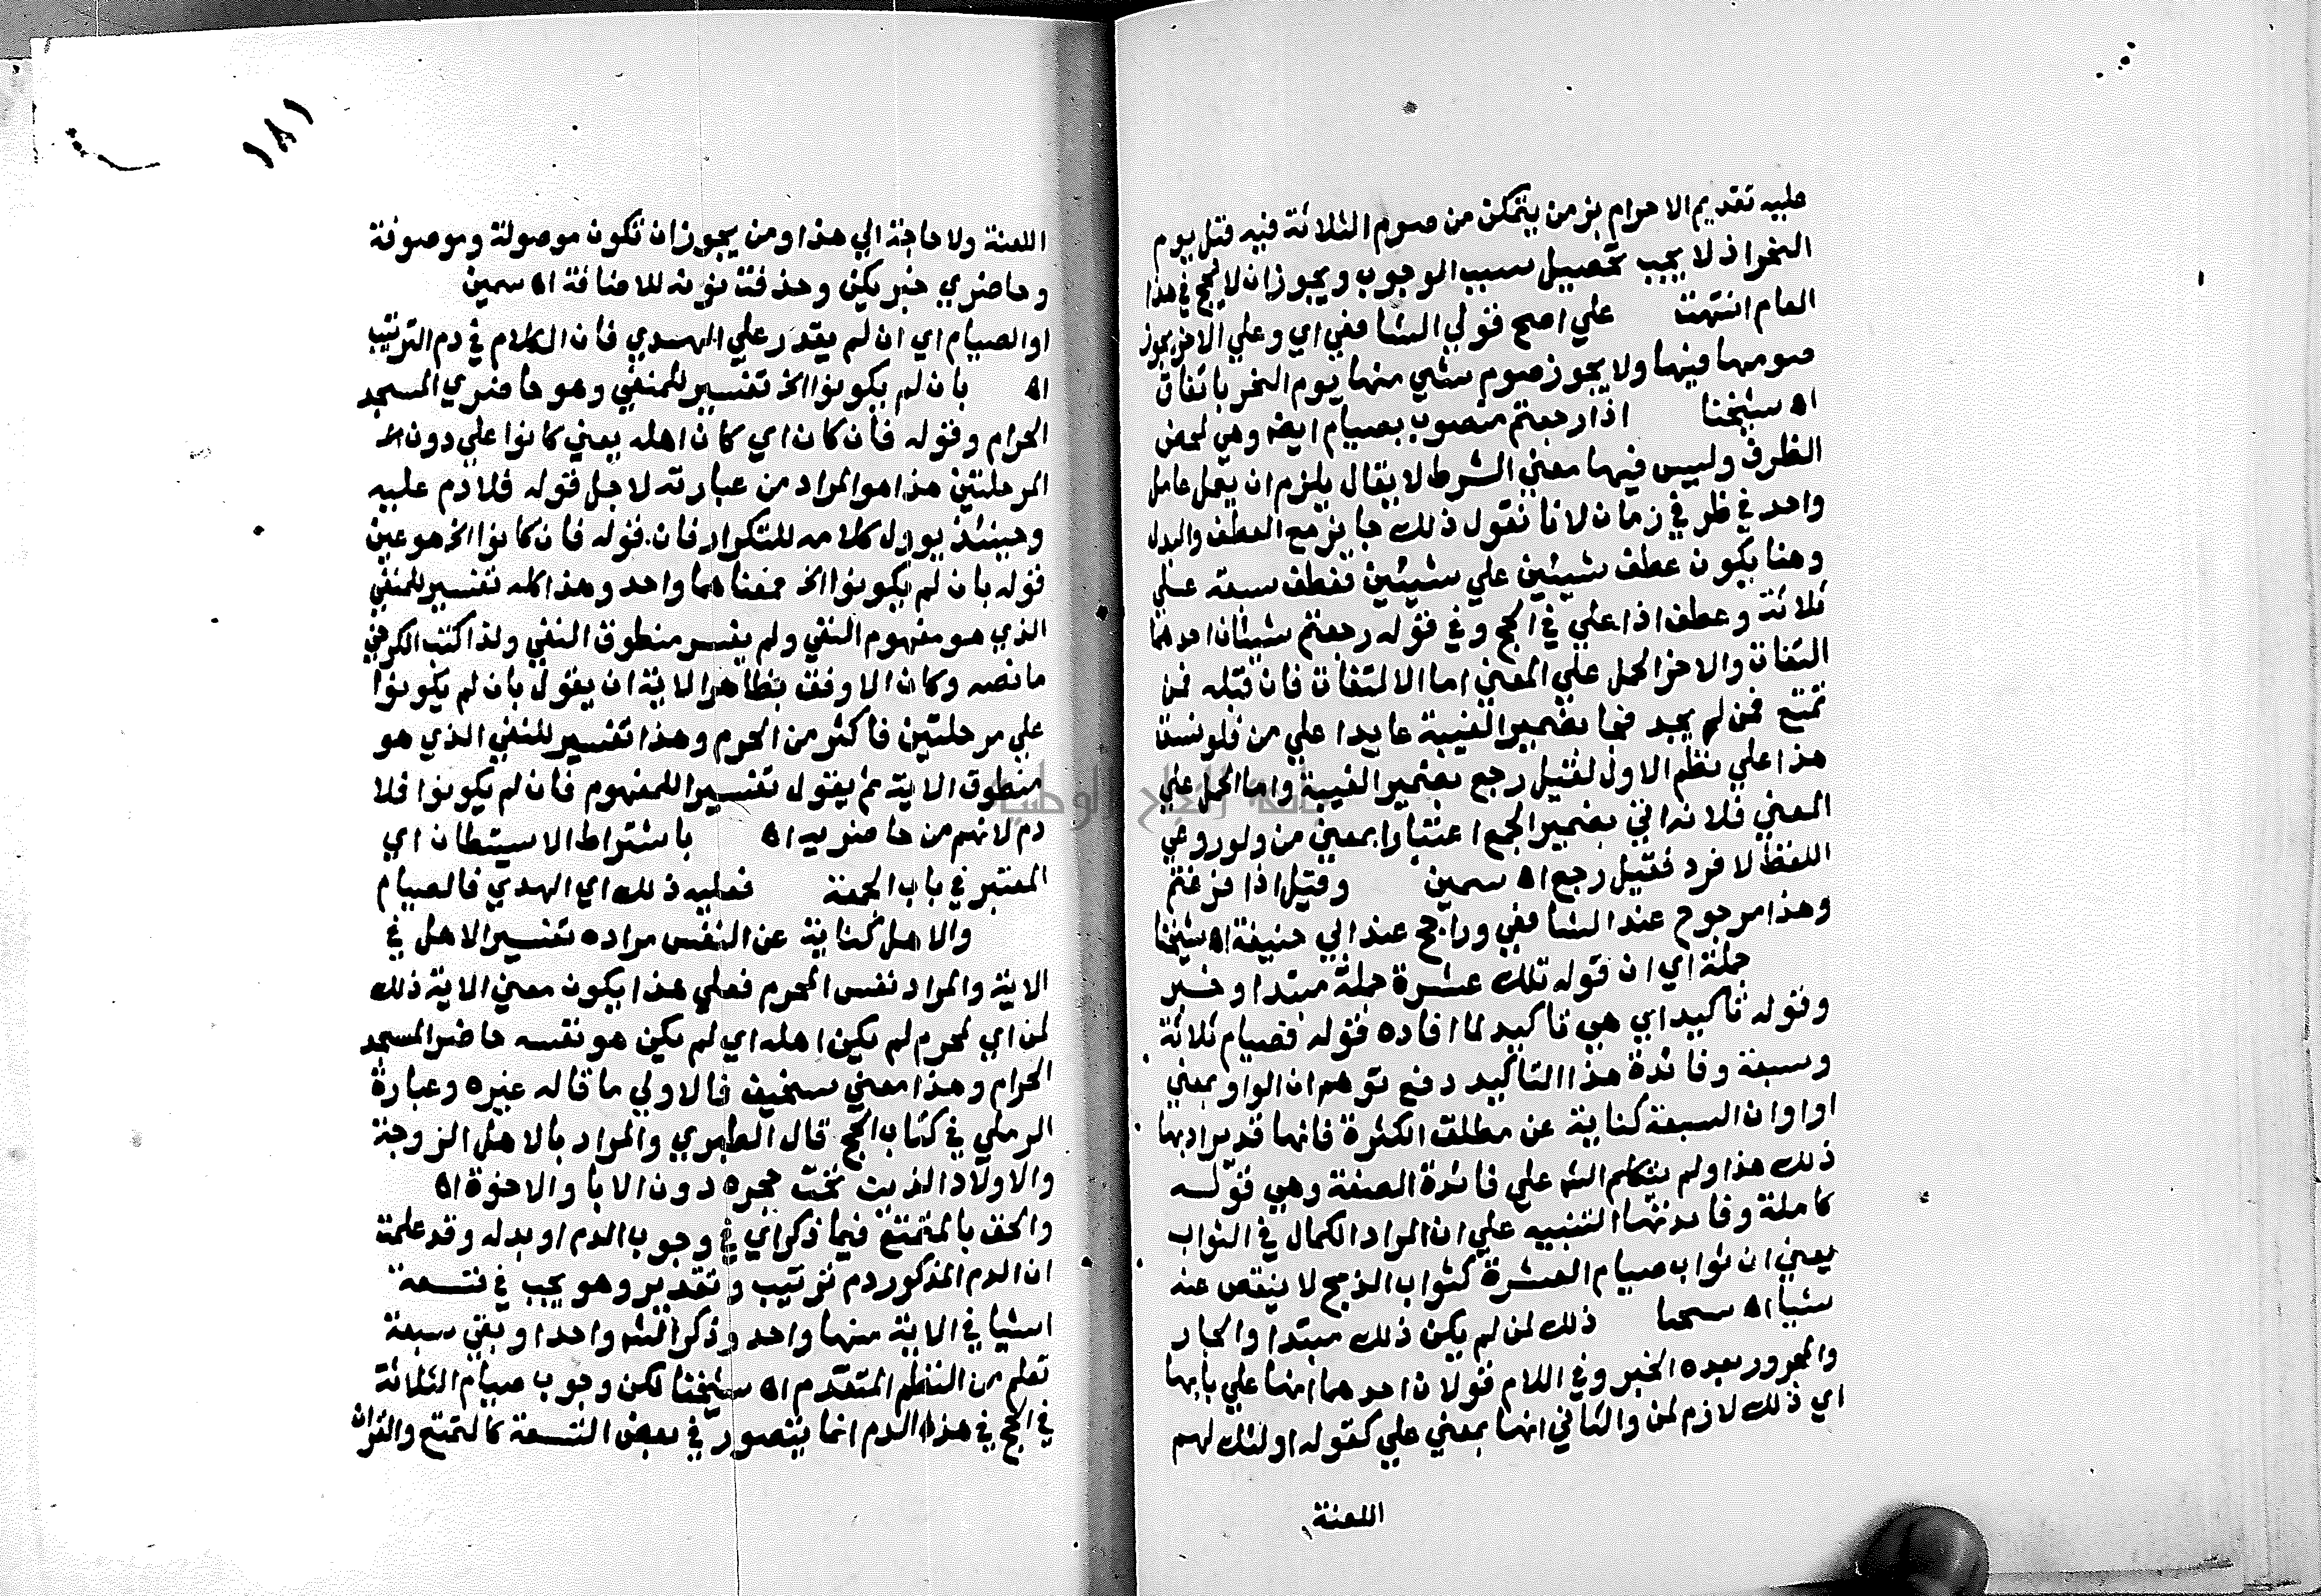 عليه تقديم الاحرام بزمن يتمكن من صوم الثلاثة فيه قبل يوم
النحر اذ لا يجب تحصيل سبب الوجوب ويجوز ان لا يحج في هذا
العام انتهت علي اصح قولي الشافعي اي وعلي الاخر يجوز
صومها فيها ولا يجوز صوم شي منها يوم النحر باتفاق
اه شيخنا اذا رجعتم منصوب بصيام ايضه وهي لمحض
الظرف وليس فيها معني الشرط لا يقال يلزم ان يعمل عامل
واحد في ظرفي زمان لانا نقول ذلك جايز مع العطف والبدل
وهنا يكون عطف شيئين علي شيئين فعطف سبعة علي
ثلاثة وعطف اذا علي في الحج وفي قوله رجعتم شيئان احدهما
التفات والاخر الحمل علي المعني اما الالتفات فان قبله فمن
تمتع فمن لم يجد فجا بضمير الغيبة عايدا علي من فلو نسق
هذا علي نظم الاول لقيل رجع بضمير الغيبة واما الحمل علي
المعني فلانه اتي بضمير الجمع اعتبارا بمعني من ولو روعي
اللفظ لافرد فقيل رجع اه سمين وقيل اذا فرغتم
وهذا مرجوح عند الشافعي وراجح عند ابي حنيفة اه شيخنا
جملة اي ان قوله تلك عشرة جملة مبتدا وخبر
وقوله تاكيد اي هي تاكيد لما افاده قوله فصيام ثلاثة
وسبعة وفائدة هذا التاكيد دفع توهم ان الواو بمعني
او او ان السبعة كناية عن مطلق الكثرة فانها قد يراد بها
ذلك هذا ولم يتكلم الشه علي فائدة الصفة وهي قوله
كاملة وفايدتها التنبيه علي ان المراد الكمال في الثواب
يعني ان ثواب صيام العشرة كثواب الذبح لا ينقص عنه
شيا اه ذلك لمن لم يكن ذلك مبتدا والجار
والمجرور بعده الخبر وفي اللام قولان احدهما انها علي بابها
اي ذلك لازم لمن والثاني انها بمعني علي كقوله اولئك لهم
اللعنة
١٨١
اللعنة ولا حاجة الي هذا ومن يجوز ان تكون موصولة وموصوفة
وحاضري خبر يكن وحذفت نونه للاضافة اه سمين
او الصيام اي ان لم يقدر علي الهدي فان الكلام في دم الترتيب
اه بان لم يكونوا الخ تفسير للمنفي وهو حاضري المسجد
الحرام وقوله فان كان اي كان اهله يعني كانوا علي دون الخ
المرحلتين هذا هو المراد من عبارته لاجل قوله فلا دم عليه
وحينئذ يوول كلامه للتكرار فان قوله فان كانوا الخ هو عين
قوله بان لم يكونوا الخ فمعناهما واحد وهذا كله تفسير للمنفي
الذي هو مفهوم النفي ولم يفسر منطوق النفي ولذا كتب الكرخي
ما نصه وكان الاوفق بظاهر الاية ان يقول بان لم يكونوا
علي مرحلتين فاكثر من الحرم وهذا تفسير للنفي الذي هو
منطوق الاية ثم يقول تفسيرا للمفهوم فان لم يكونوا فلا
دم لانهم من حاضريه اه باشتراط الاستيطان اي
المعتبر في باب الجمعة فعليه ذلك اي الهدي فالصيام
والاهل كناية عن النفس مراده تفسير الاهل في
الاية والمراد نفس المحرم فعلي هذا يكون معني الاية ذلك
لمن اي لمحرم لم يكن اهله اي لم يكن هو نفسه حاضر المسجد
الحرام وهذا معني سخيف فالاولي ما قاله غيره وعبارة
الرملي في كتاب الحج قال الطبري والمراد بالاهل الزوجة
والاولاد الذين تحت حجره دون الابا والاخوة اه
والحق بالمتمتع فيما ذكر اي في وجوب الدم او بدله وقد علمت
ان الدم المذكور دم ترتيب وتقدير وهو يجب في تسعة
اشيا في الاية منها واحد وذكر الشه واحدا وبقي سبعة
تعلم من النظم المتقدم اه شيخنا لكن وجوب صيام الثلاثة
في الحج في هذا الدم انما يتصور في بعض التسعة كالتمتع والقران